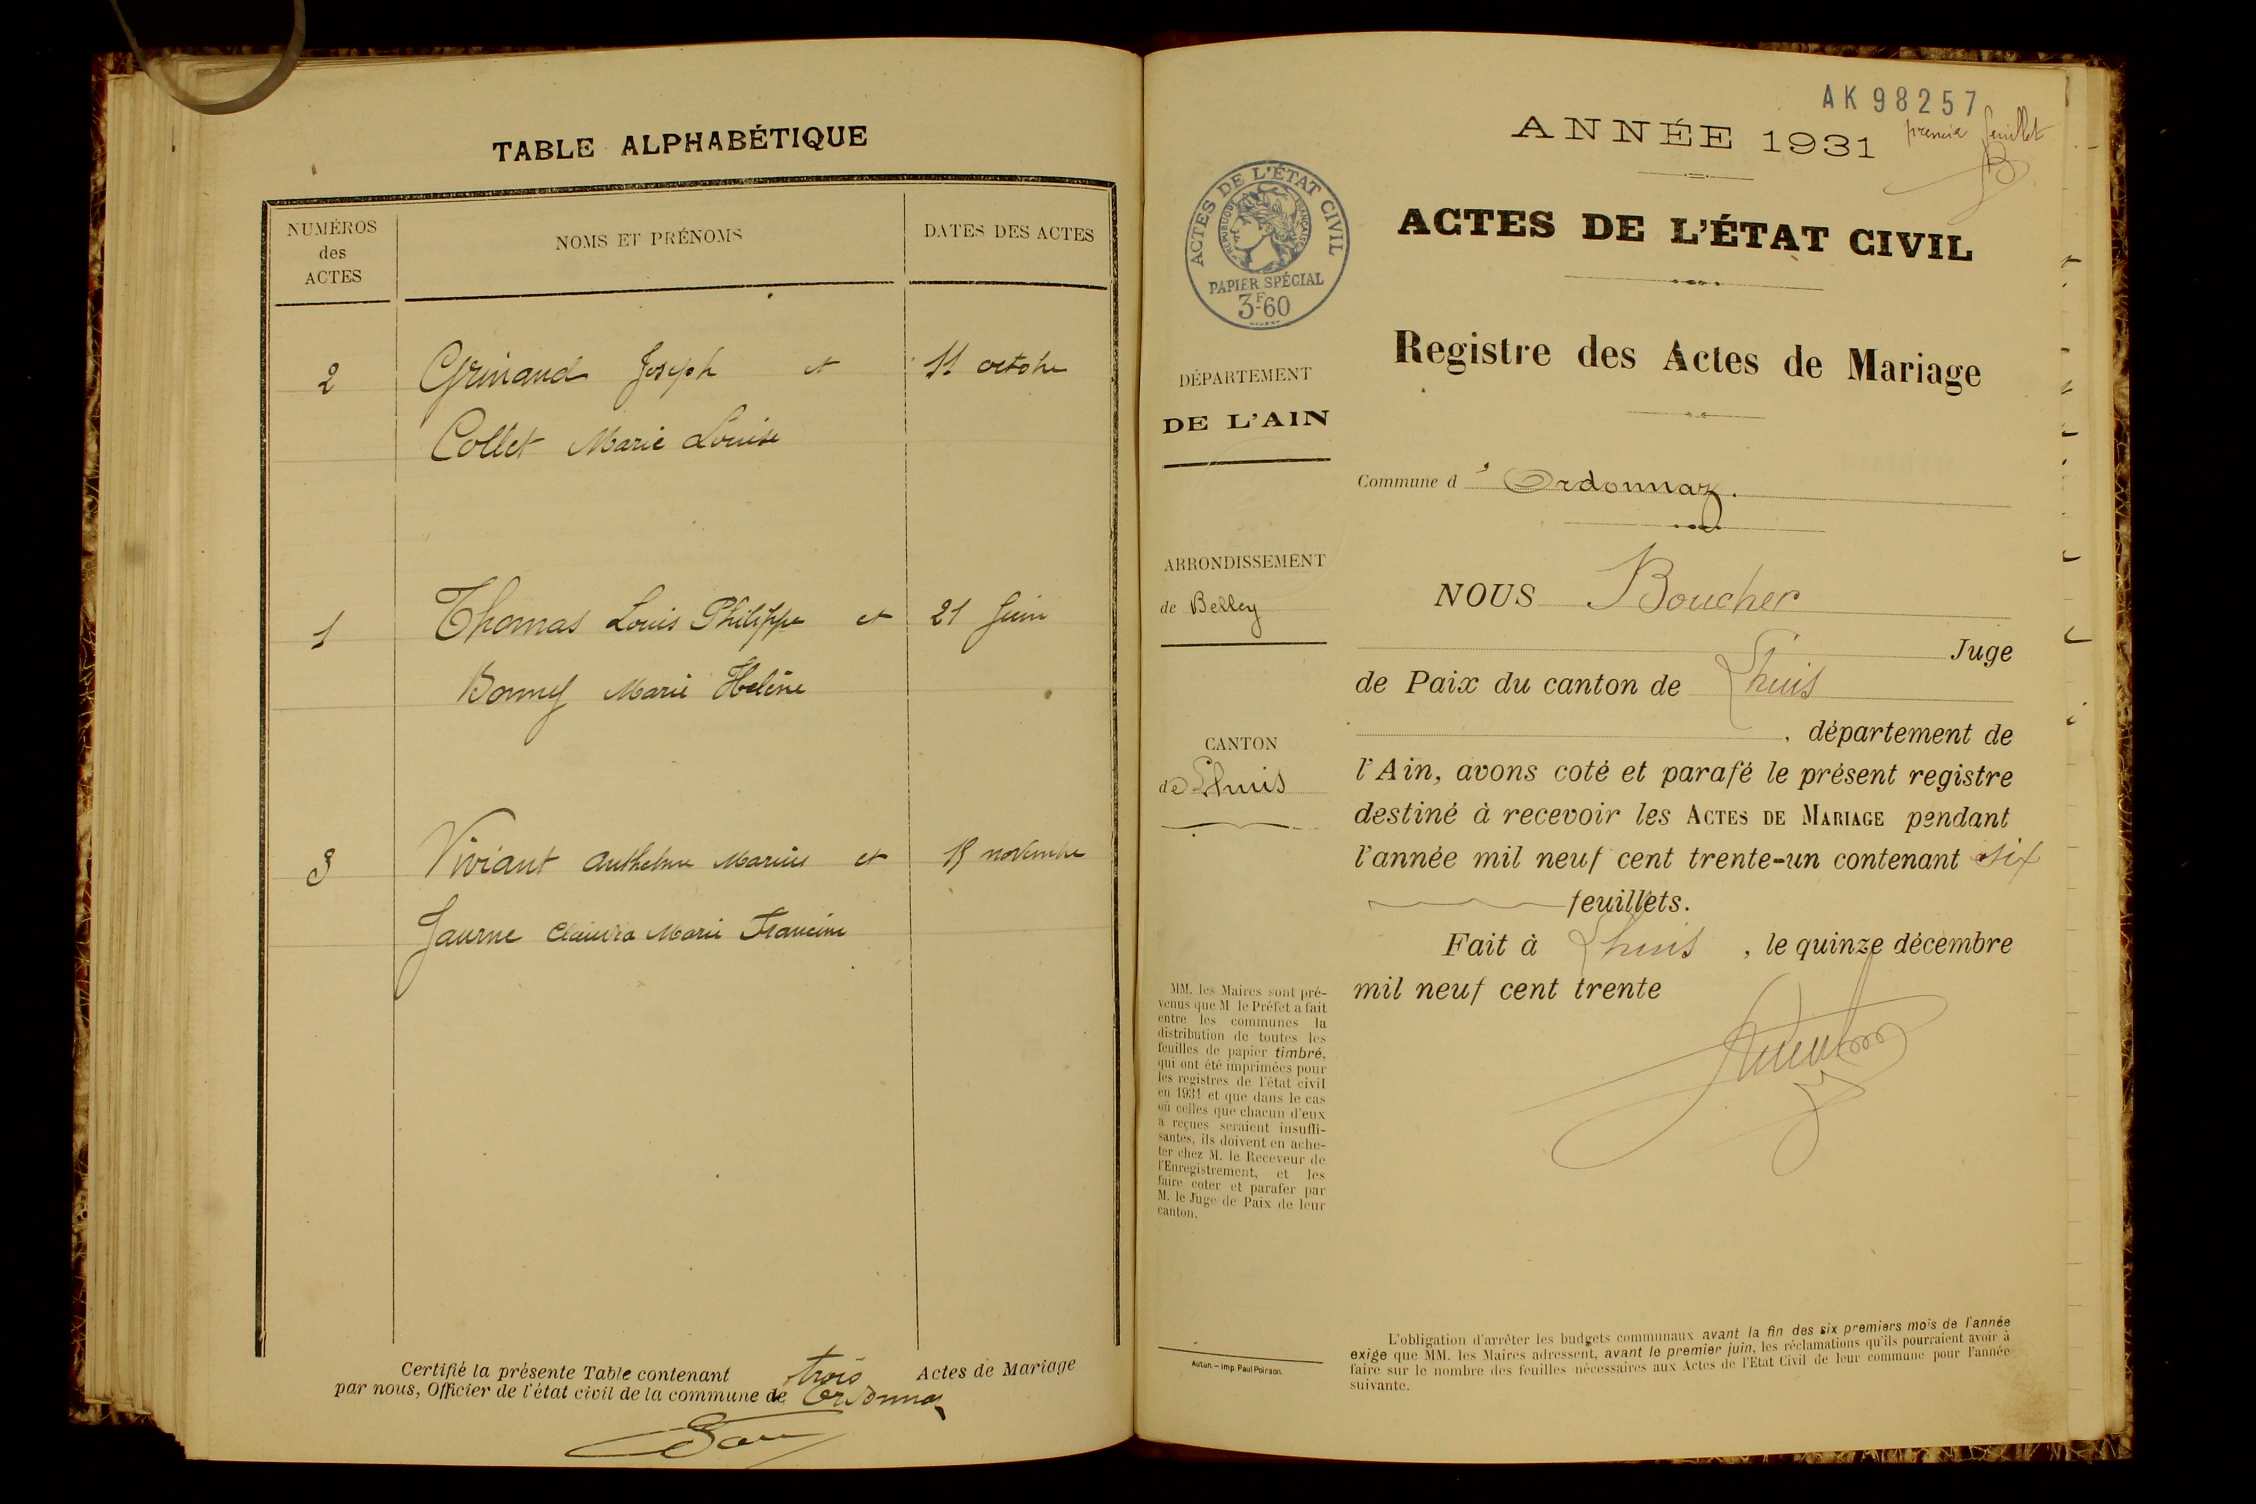 TABLE ALPHABÉTIQUE
NUMÉROS
des
ACTES
NOMS ET PRÉNOMS
DATES DES ACTES
2 Grinand Joseph et 11 octobre
Collet Marie Louise
1 Thomas Louis Philippe et 21 Juin
Bonny Marie Helène
3 Viviant Anthelme Marius et novembre
Marie Francine
Certifié la présente Table contenant trois Actes de Mariage
par nous, Officier de l'état civil de la commune de Ordonnaz
AK 98257
premier feuillet
ANNÉE 1931
ACTES DE L'ÉTAT CIVIL
RÉPUBLIQUE FRANÇAISE
PAPIER SPÉCIAL
3F60
ACTES DE L'ÉTAT CIVIL
Registre des Actes de Mariage
DÉPARTEMENT
DE L'AIN
Commune d'Ordonnaz.
ARRONDISSEMENT
de Belley
CANTON
de Lhuis
NOUS Boucher
Juge
de Paix du canton de Lhuis
, département de
l'Ain, avons coté et parafé le présent registre
destiné à recevoir les ACTES DE MARIAGE pendant
l'année mil neuf cent trente-un contenant six
feuillets.
Fait à Lhuis, le quinze décembre
mil neuf cent trente
MM. les Maires sont pré-
venus que M le Préfet a fait
entre les communes la
distribution de toutes les
feuilles de papier timbré,
qui ont été imprimées pour
les registres de l'état civil
en 1931 et que dans le cas
où celles que chacun d'eux
a reçues seraient insuffi-
santes, ils doivent en ache-
ter chez M. le Receveur de
l'Enregistrement, et les
faire coter et parafer par
M. le Juge de Paix de leur
canton.
Autun. - Imp. Paul Poirson.
L'obligation d'arrêter les budgets communaux avant la fin des six premiers mois de l'année
exige que MM. les Maires adressent, avant le premier juin, les réclamations qu'ils pourraient avoir à
faire sur le nombre des feuilles nécessaires aux Actes de l'Etat Civil de leur commune pour l'année
suivante.